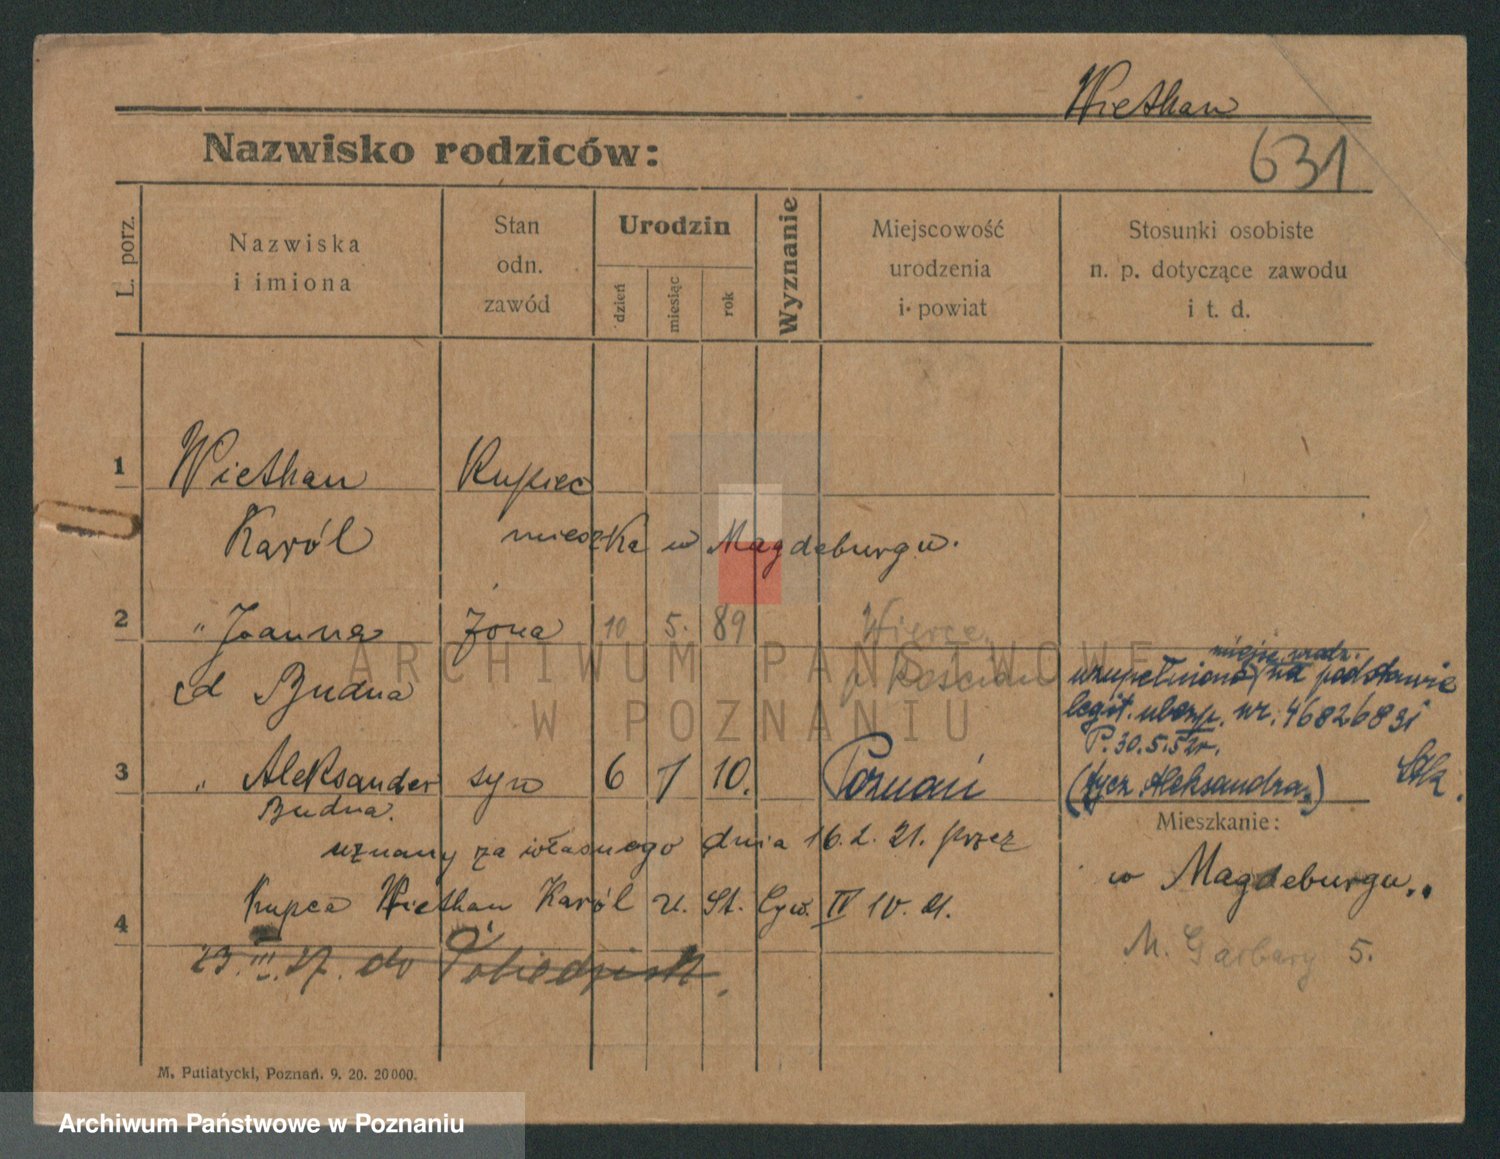 Wiethan
Nazwisko rodziców:
631
L. porz.
Nazwiska
i imiona
Stan
odn.
zawód
Urodzin
dzień
miesiąc
rok
Wyznanie
Miejscowość
urodzenia
i powiat
Stosunki osobiste
n. p. dotyczące zawodu
i t. d.
1 Wiethan Kupiec
Karól mieszka w Magdeburgu.
2 " Joanna żona 10 5. 89
ARCHIWUM PAŃSTWOWE
W POZNANIU
miejsc. urodz.
uzupełniono na podstawie
legit. ubezp. nr. 46826831
P. 30.5.52r.
(tycz. Aleksandra.)
Budna
3 " Aleksander syn 6 1 10. Poznań
Budna.
uznany za własnego dnia 16.2.21. przez
Mieszkanie:
w Magdeburgu..
4 Kupca Wiethan Karól U. St. Cyw. IV 10. 21.
23.III.27. do Pobiedzisk.
M. Garbary 5.
M. Putiatycki, Poznań. 9. 20. 20000.
Archiwum Państwowe w Poznaniu